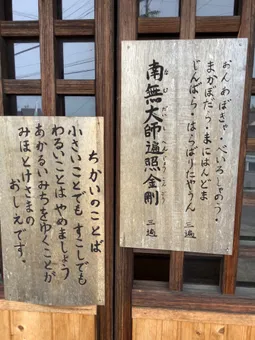 おんあぼきゃ・べいろしゃのう・
まかぼだら・まにはんどま
じんばら・はらばりたやうん
三遍
南無大師遍照金剛
三遍
ちかいのことば
小さいことでも すこしでも
わるいことはやめましょう
あかるいみちをゆくことが
みほとけさまの
おしえです。